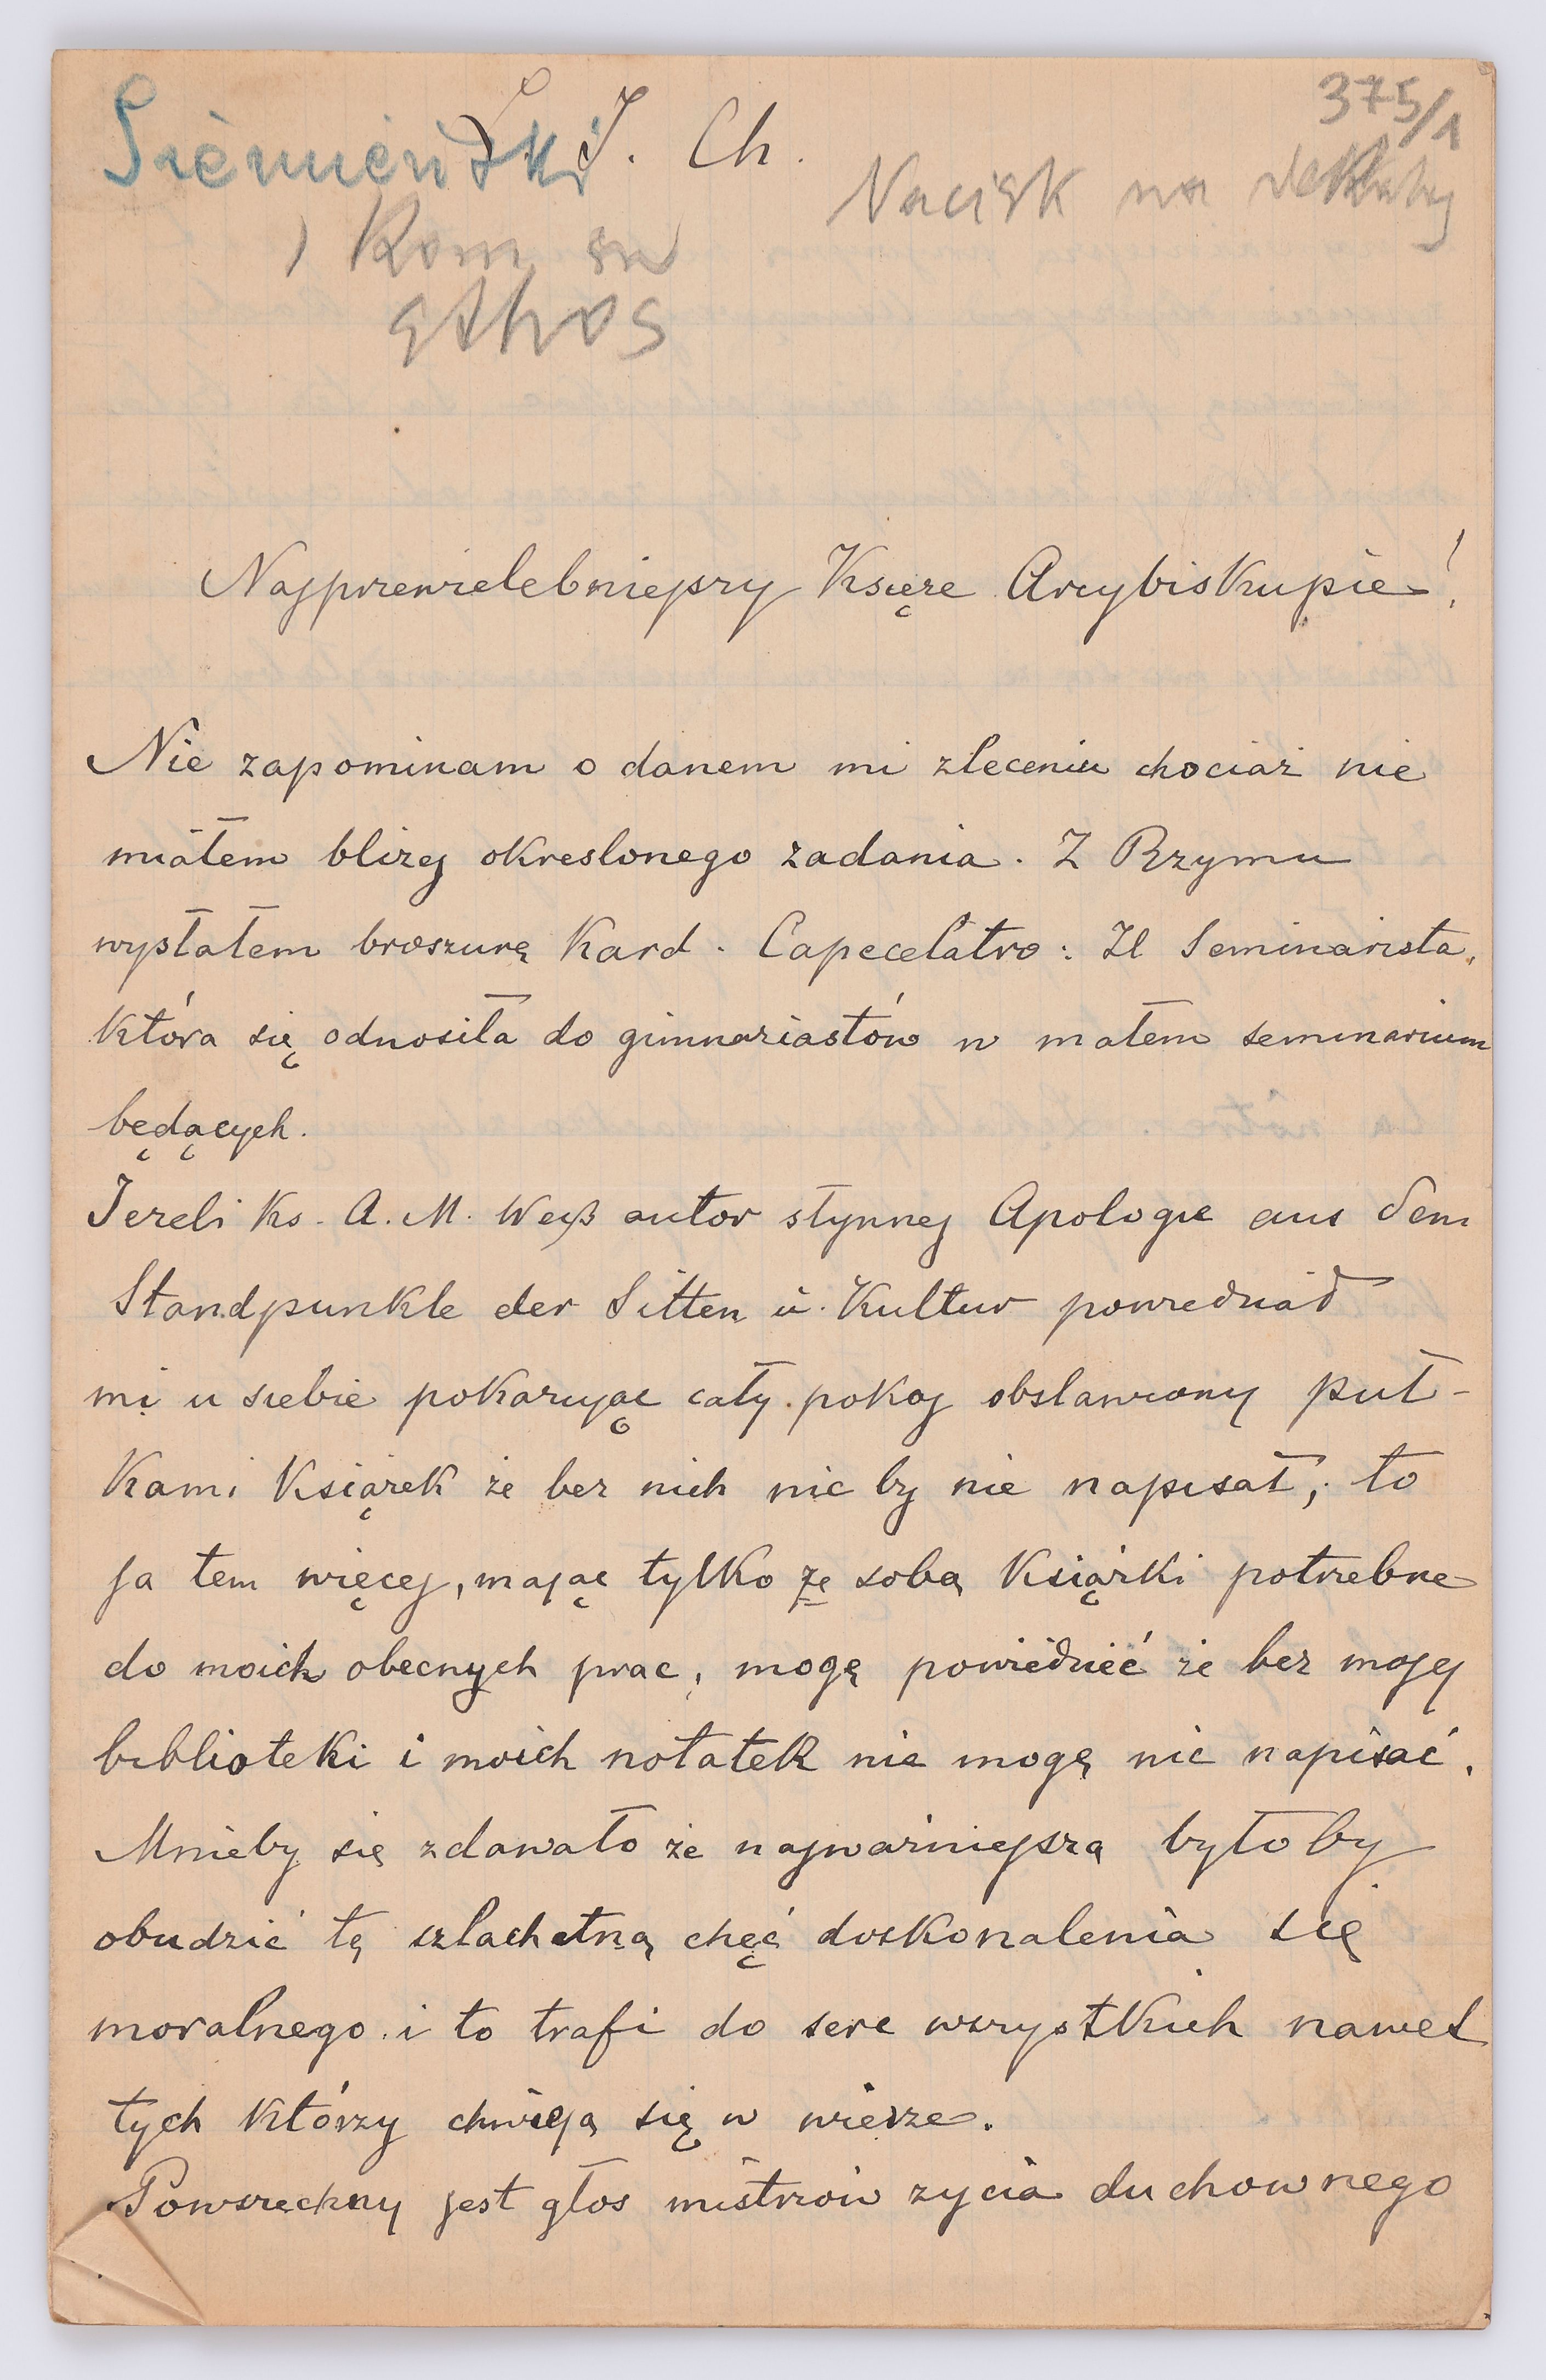 375/1
Siemieński J. Ch.
Nacisk na
Najprzewielebniejszy Księże Arcybiskupie!
Nie zapominam o danem mi zleceniu chociaż nie
miałem bliżej okreslonego zadania. Z Rzymu
wysłałem broszurę Kard. Capecelatro: Il Seminarista,
która się odnosiła do gimnaziastów w małem seminarium
będących.
Jeżeli ks. A. M. Weiß autor słynnej Apologie aus dem
Standpunkte der Sitten u. Kultur powiedział
mi u siebie pokazując cały pokoj obstawiony pół-
kami książek że bez nich nic by nie napisał, to
ja tem więcej, mając tylko ze sobą książki potrzebne
do moich obecnych prac, mogę powiedzieć że bez mojej
biblioteki i moich notatek nie mogę nic napisać.
Mnieby się zdawało że najważniejszą byłoby
obudzić tę szlachetną chęć doskonalenia się
moralnego i to trafi do serc wszystkich nawet
tych którzy chwieją się w wierze.
Powszechny jest głos mistrzów życia duchownego